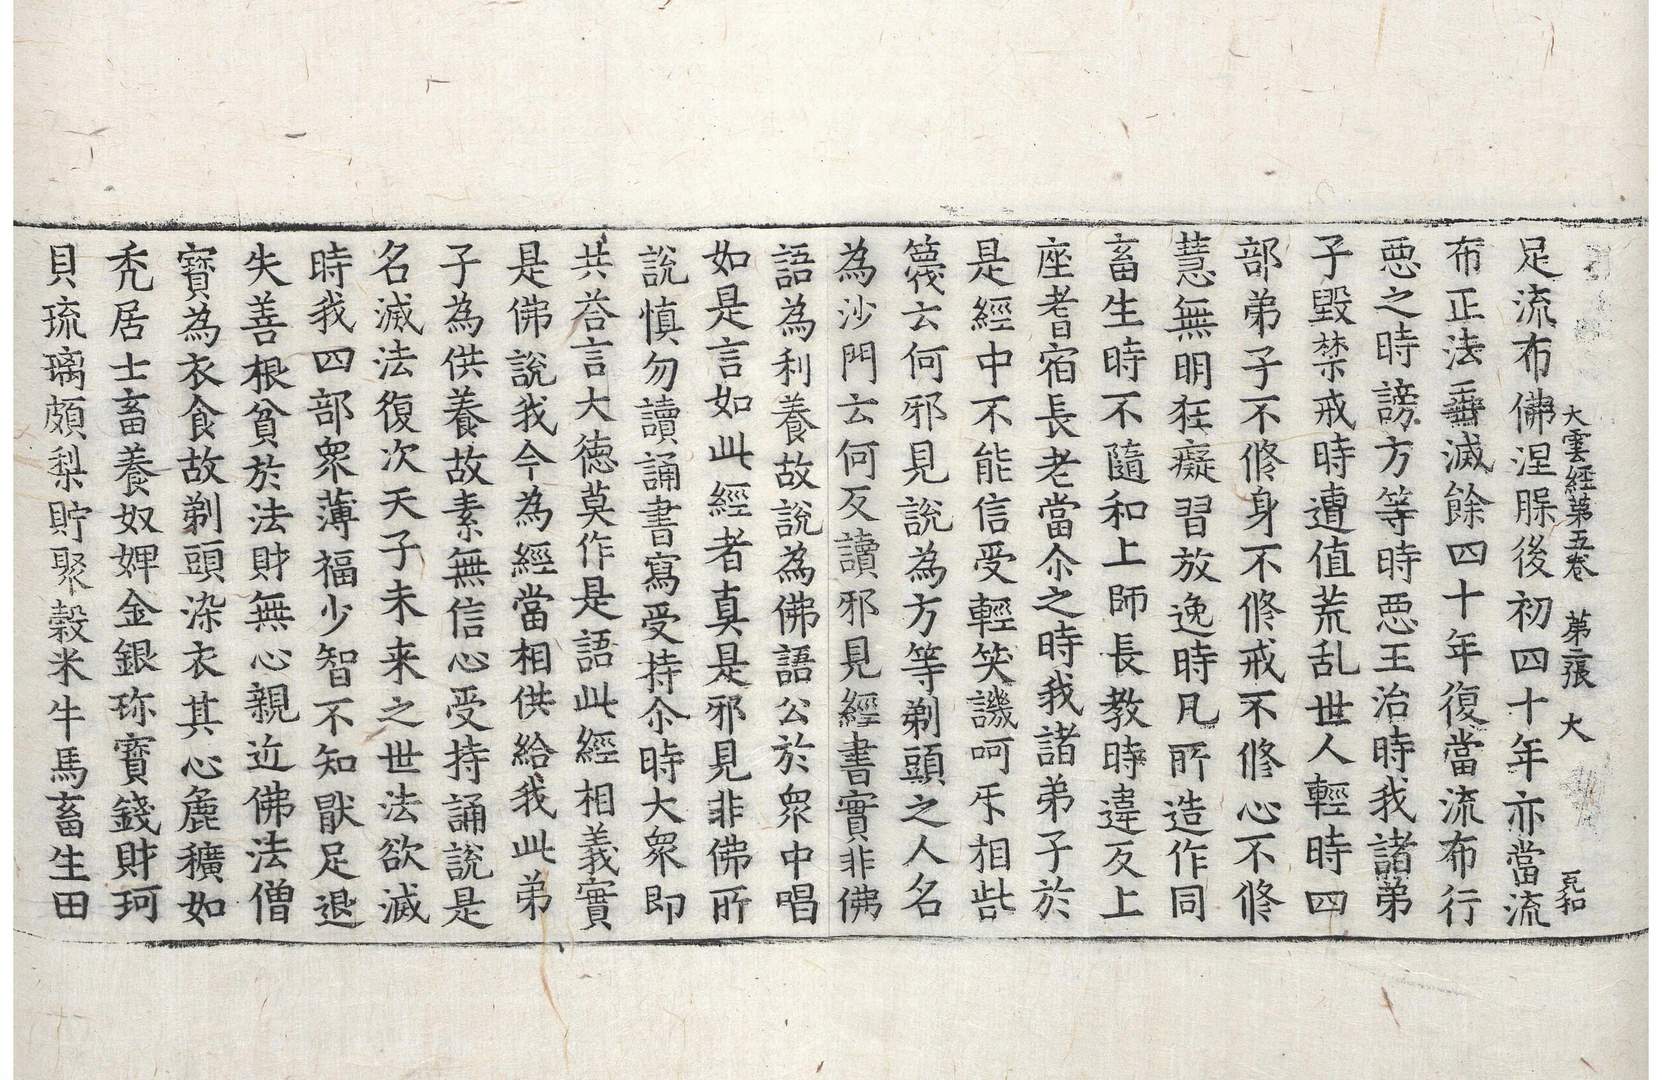 大雲經第五卷 第二張 大 元和
足流布佛涅脲後初四十年亦當流
布正法垂滅餘四十年復當流布行
惡之時謗方等時惡王治時我諸弟
子毀禁戒時遭值荒乱世人輕時四
部弟子不修身不修戒不修心不修
慧無明狂癡習放逸時凡所造作同
畜生時不隨和上師長教時違反上
座耆宿長老當尒之時我諸弟子於
是經中不能信受輕笑譏呵乐相呰
篾云何邪見說為方等剃頭之人名
為沙門云何反讀邪見經書實非佛
語為利養故說為佛語公於眾中唱
如是言如此經者真是邪見非佛所
說慎勿讀誦書寫受持尒時大眾即
共荅言大德莫作是語此經相義實
是佛說我今為經當相供給我此弟
子為供養故素無信心受持誦說是
名滅法復次天子未来之世法欲滅
時我四部眾薄福少智不知猒足退
失善根貧於法財無心親近佛法僧
寶為衣食故剃頭染衣其心麁穬如
秃居士畜養奴婢金銀珎寶錢財珂
貝琉璃頗梨貯聚穀米牛馬畜生田